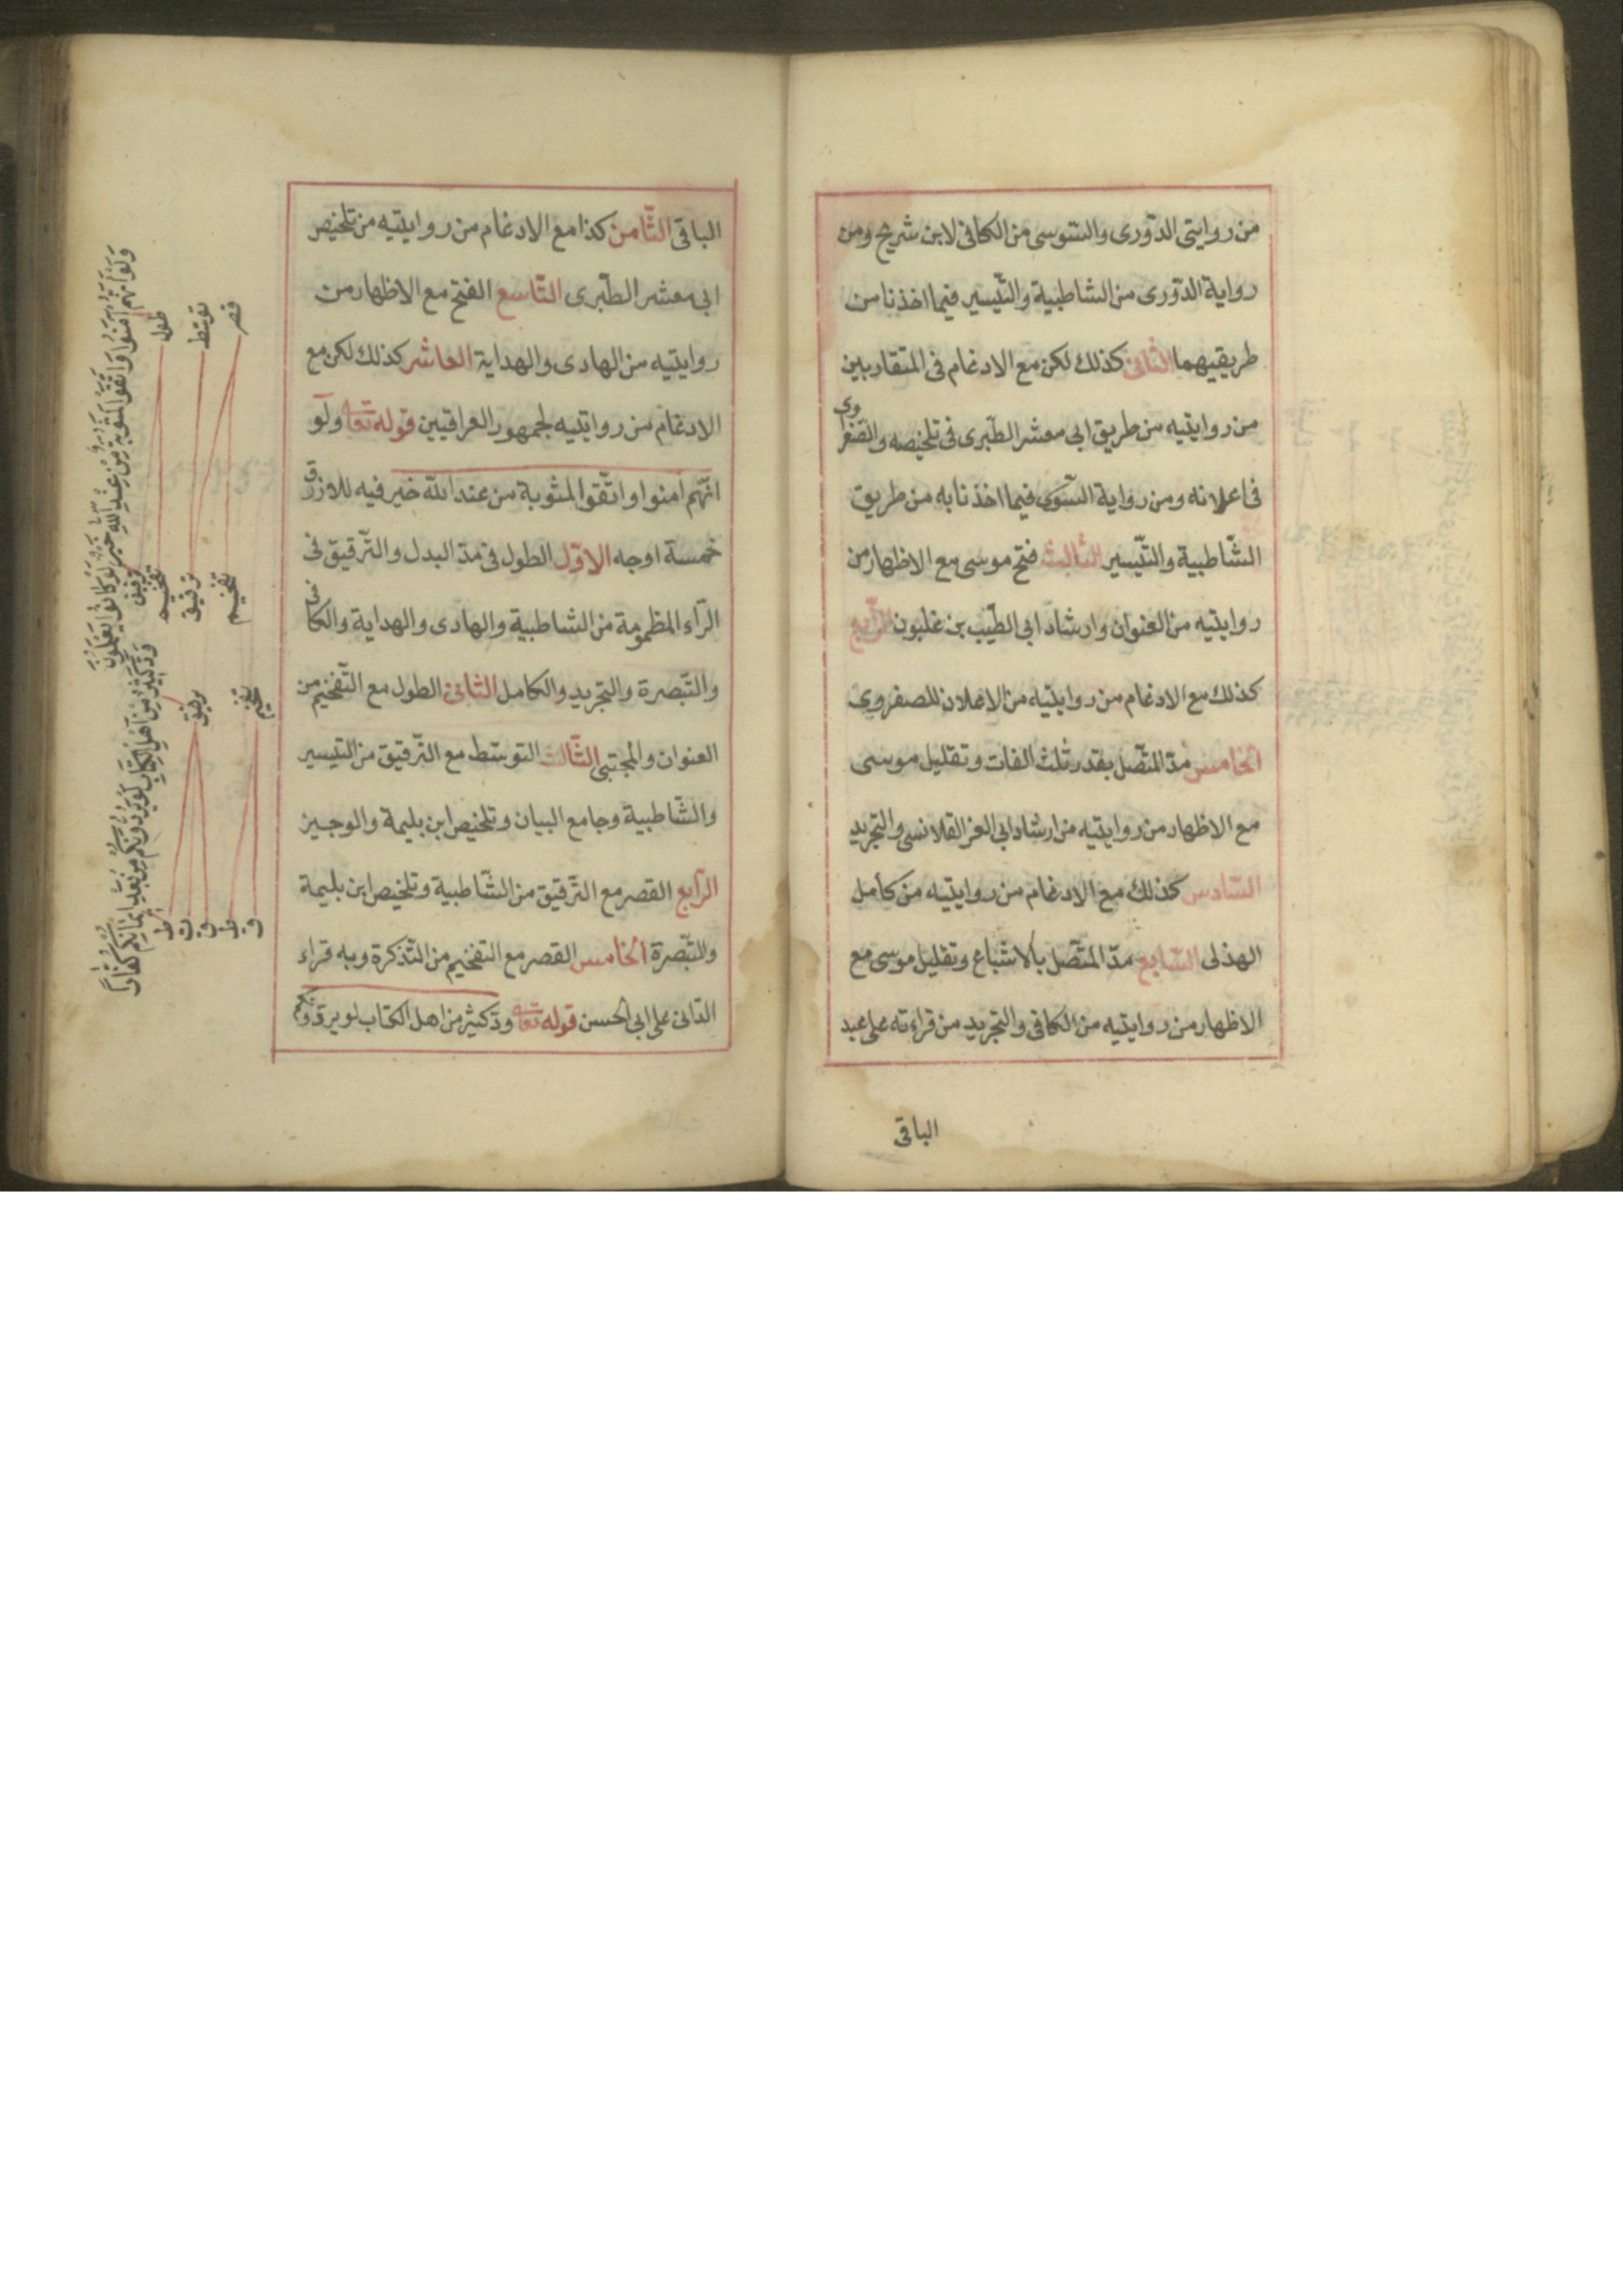 من روايتى الدّورى والسّوسى من الكافى لابن شريح ومن
رواية الدّورى من الشاطبية والتّيسير فيما اخذنا من
طريقيهما الثانى كذلك لكن مع الادغام فى المتقاربين
من روايتيه من طريق ابى معشر الطّبرى فى تلخيصه والصّفراوى
فى اعلانه ومن رواية السّوسى فيما اخذنا به من طريق
الشّاطبية والتّيسير الثالث فتح موسى مع الاظهار من
روايتيه من العنوان وارشاد ابى الطّيب بن غلبون الرّابع
كذلك مع الادغام من روايتيه من الاعلان للصفروى
الخامس مدّ المتّصل بقدر ثلث الفات وتقليل موسى
مع الاظهار من روايتيه من ارشاد ابى العز القلانسى والتجريد
السّادس كذلك مع الادغام من روايتيه من كامل
الهذلى السّابع مدّ المتّصل بالاشباع وتقليل موسى مع
الاظهار من روايتيه من الكافى والتجريد من قراءته على عبد
الباقى
الباقى الثّامن كذا مع الادغام من روايتيه من تلخيص
ابى معشر الطّبرى التّاسع الفتح مع الاظهار من
روايتيه من الهادى والهداية العاشر كذلك لكن مع
الادغام من روايتيه لجمهور العراقيين قوله تعالى ولو
انّهم امنوا واتّقوا لمثوبة من عند الله خير فيه للازرق
خمسة اوجه الاوّل الطول فى مدّ البدل والتّرقيق فى
الرّاء المظمومة من الشاطبية والهادى والهداية والكافى
والتّبصرة والتجريد والكامل الثانى الطول مع التّفخيم من
العنوان والمجتبى الثّالث التوسّط مع التّرقيق من التيسير
والشّاطبية وجامع البيان وتلخيص ابن بليمة والوجيز
الرّابع القصر مع التّرقيق من الشّاطبية وتلخيص ابن بليمة
والتّبصرة الخامس القصر مع التفخيم من التّذكرة وبه قراء
الدّانى على ابى الحسن قوله تعالى ودّ كثير من اهل الكتاب لو يردّونكم
وَلَوْ اَنَّهُمْ اٰمَنُوا وَاتَّقَوْا لَمَثُوبَةٌ مِنْ عِنْدِ اللّٰهِ خَيْرٌ لَوْ كَانُوا يَعْلَمُونَ
طول
توسّط
قصر
ترقيق
تفخيم
ترقيق
تفخيم
وَدَّ كَثِيرٌ مِنْ اَهْلِ الْكِتَابِ لَوْ يَرُدُّونَكُمْ مِنْ بَعْدِ اِيمَانِكُمْ كُفَّارًا
ترقيق
تفخيم
ط
ت
ق
ط
ق